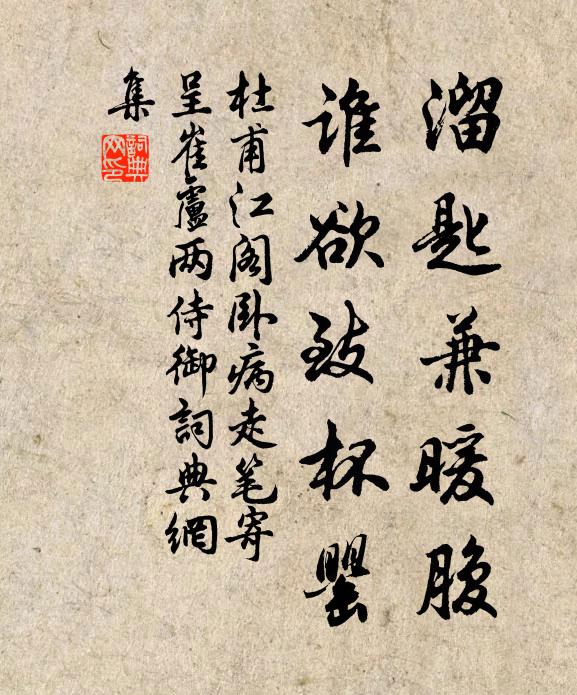 溜匙兼暖腹
谁欲致杯罂
杜甫江阁卧病走笔寄
呈崔盧两侍御詞典網
集
詞典
网印